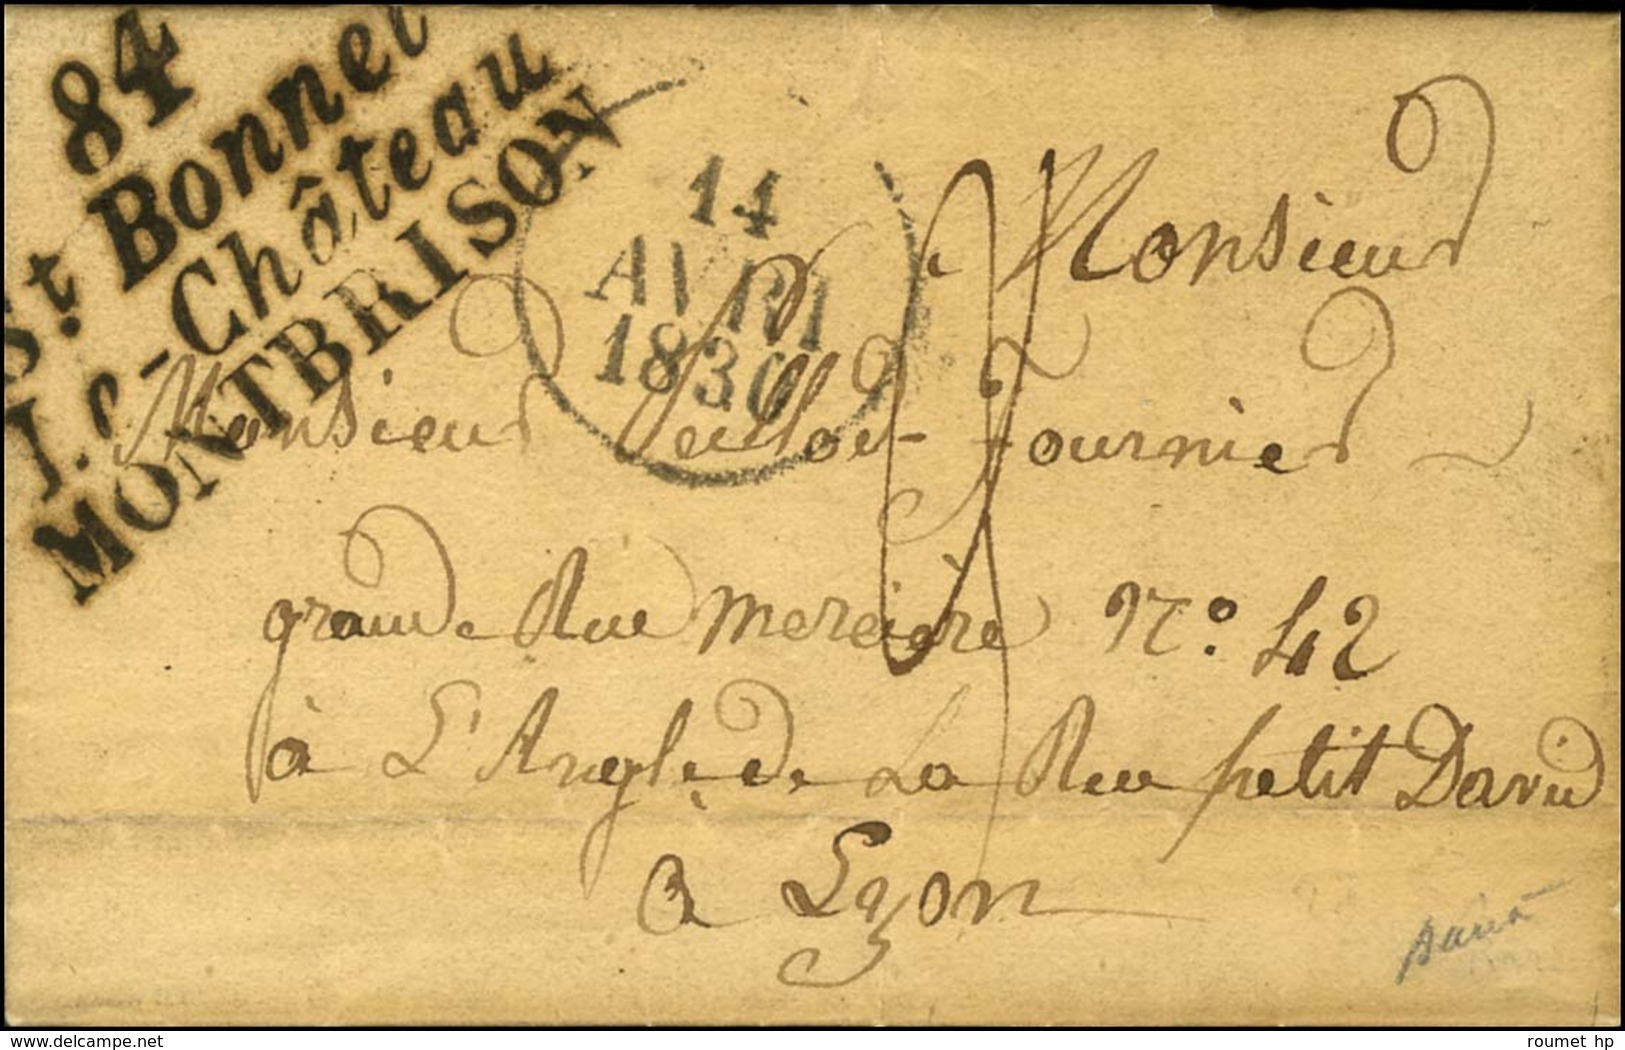 84
St. Bonnet
Le-Château
MONTBRISON
14
AVRI
1830
Monsieur
Monsieur Fournier
grande Rue merciere N.o 42
à L'Angle de La Rue petit David
a Lyon
roumet hp